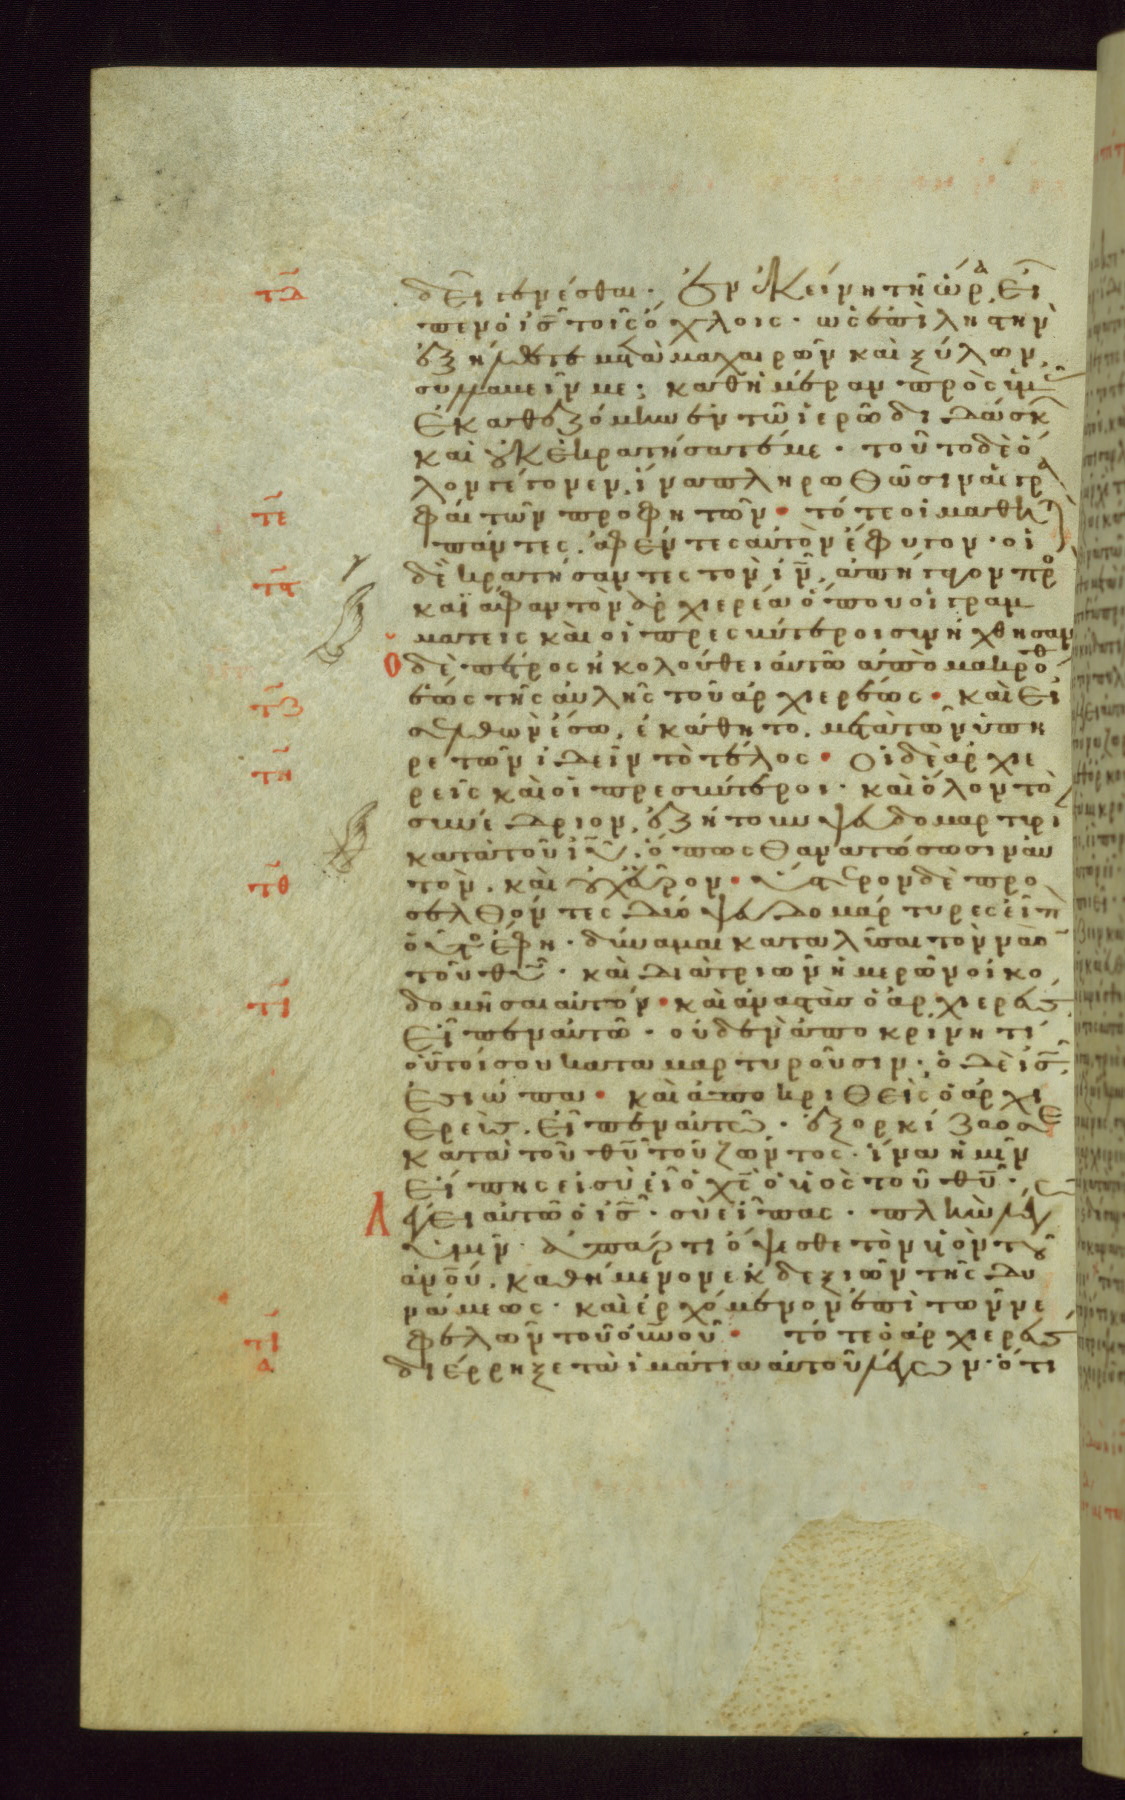 τ̅δ̅ δεῖ γενέσθαι· ἐν ἐκείνη τῆ ὥρα εἶ
πεν ὁ ι̅ς̅ τοῖς ὄχλοις· ὡς ἐπὶ ληστὴν
ἐξήλθετε μετὰ μαχαιρῶν καὶ ξύλων
συλλαβεῖν με; καθημέραν πρὸς ὑμᾶς
ἐκαθεζόμην ἐν τῶ ἱερῶ διδάσκ
καὶ οὐκ ἐκρατήσατέ με· τοῦτο δὲ ὅ
λον γέγονεν, ἵνα πληρωθῶσιν αἱ γρα
τ̅ε̅ φαὶ τῶν προφητῶν· τότε οἱ μαθητ
πάντες, ἀφέντες αὐτὸν ἔφυγον· οἱ
τ̅ϛ̅ δὲ κρατήσαντες τὸν ι̅ν̅, ἀπήγαγον πρὸ
καϊάφαν τὸν ἀρχιερέα ὅπου οἱ γραμ
ματεῖς καὶ οἱ πρεσβύτεροι συνήχθησαν
ὁ δὲ πέτρος ἠκολούθει αὐτῶ ἀπὸ μακρόθ
τ̅ζ̅ ἕως τῆς αὐλῆς τοῦ ἀρχιερέως· καὶ εἰ
σελθὼν ἔσω, ἐκάθητο μετὰ τῶν ὑπη
τ̅η̅ ρετῶν ἰδεῖν τὸ τέλος· οἱ δὲ ἀρχιε
ρεῖς καὶ οἱ πρεσβύτεροι· καὶ ὅλον τὸ
συνέδριον, ἐζήτουν ψευδομαρτυρί
κατὰ τοῦ ι̅υ̅, ὅπως θανατώσωσιν αὐ
τ̅θ̅ τὸν, καὶ οὐχ εὗρον· ὕστερον δὲ προ
σελθόντες δύο ψευδομάρτυρες εἶπ
οὗτος ἔφη· δύναμαι καταλῦσαι τὸν ναὸν
τοῦ θ̅υ̅· καὶ διὰ τριῶν ἡμερῶν οἰκο
τ̅ι̅ δομῆσαι αὐτόν· καὶ ἀναστὰς ὁ ἀρχιερεὺς
εἶπεν αὐτῶ· οὐδὲν ἀποκρίνη τί
οὗτοί σου καταμαρτυροῦσιν· ὁ δὲ ι̅ς̅
ἐσιώπα· καὶ ἀποκριθεὶς ὁ ἀρχι
ερεὺς, εἶπεν αὐτῶ· ἐξορκίζω σε
κατὰ τοῦ θ̅υ̅ τοῦ ζῶντος· ἵνα ἡμῖν
εἴπης εἰ σὺ εἶ ὁ χ̅ς̅ ὁ υἱὸς τοῦ θ̅υ̅·
Λέγει αὐτῶ ὁ ι̅ς̅· σὺ εἶπας· πλὴν λέγω
ὑμῖν· ἀπάρτι ὄψεσθε τὸν υἱὸν τοῦ
α̅ν̅ο̅υ̅, καθήμενον ἐκ δεξιῶν τῆς δυ
νάμεως· καὶ ἐρχόμενον ἐπὶ τῶν νε
τ̅ι̅α̅ φελῶν τοῦ ο̅υ̅ν̅ο̅υ̅· τότε ὁ ἀρχιερεὺς
διέρρηξε τὰ ἱμάτια αὐτοῦ λέγων· ὅτι